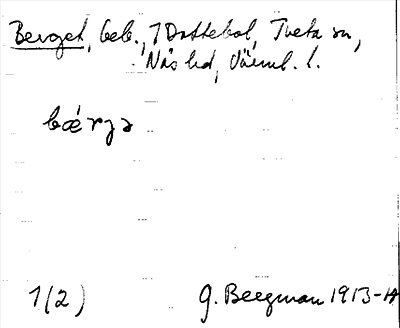 Berget, beb., 7 Dottebol, Tveta sn,
Näs hd, Värml. l.
bǽrjə
1(2) G. Bergman 1913-14